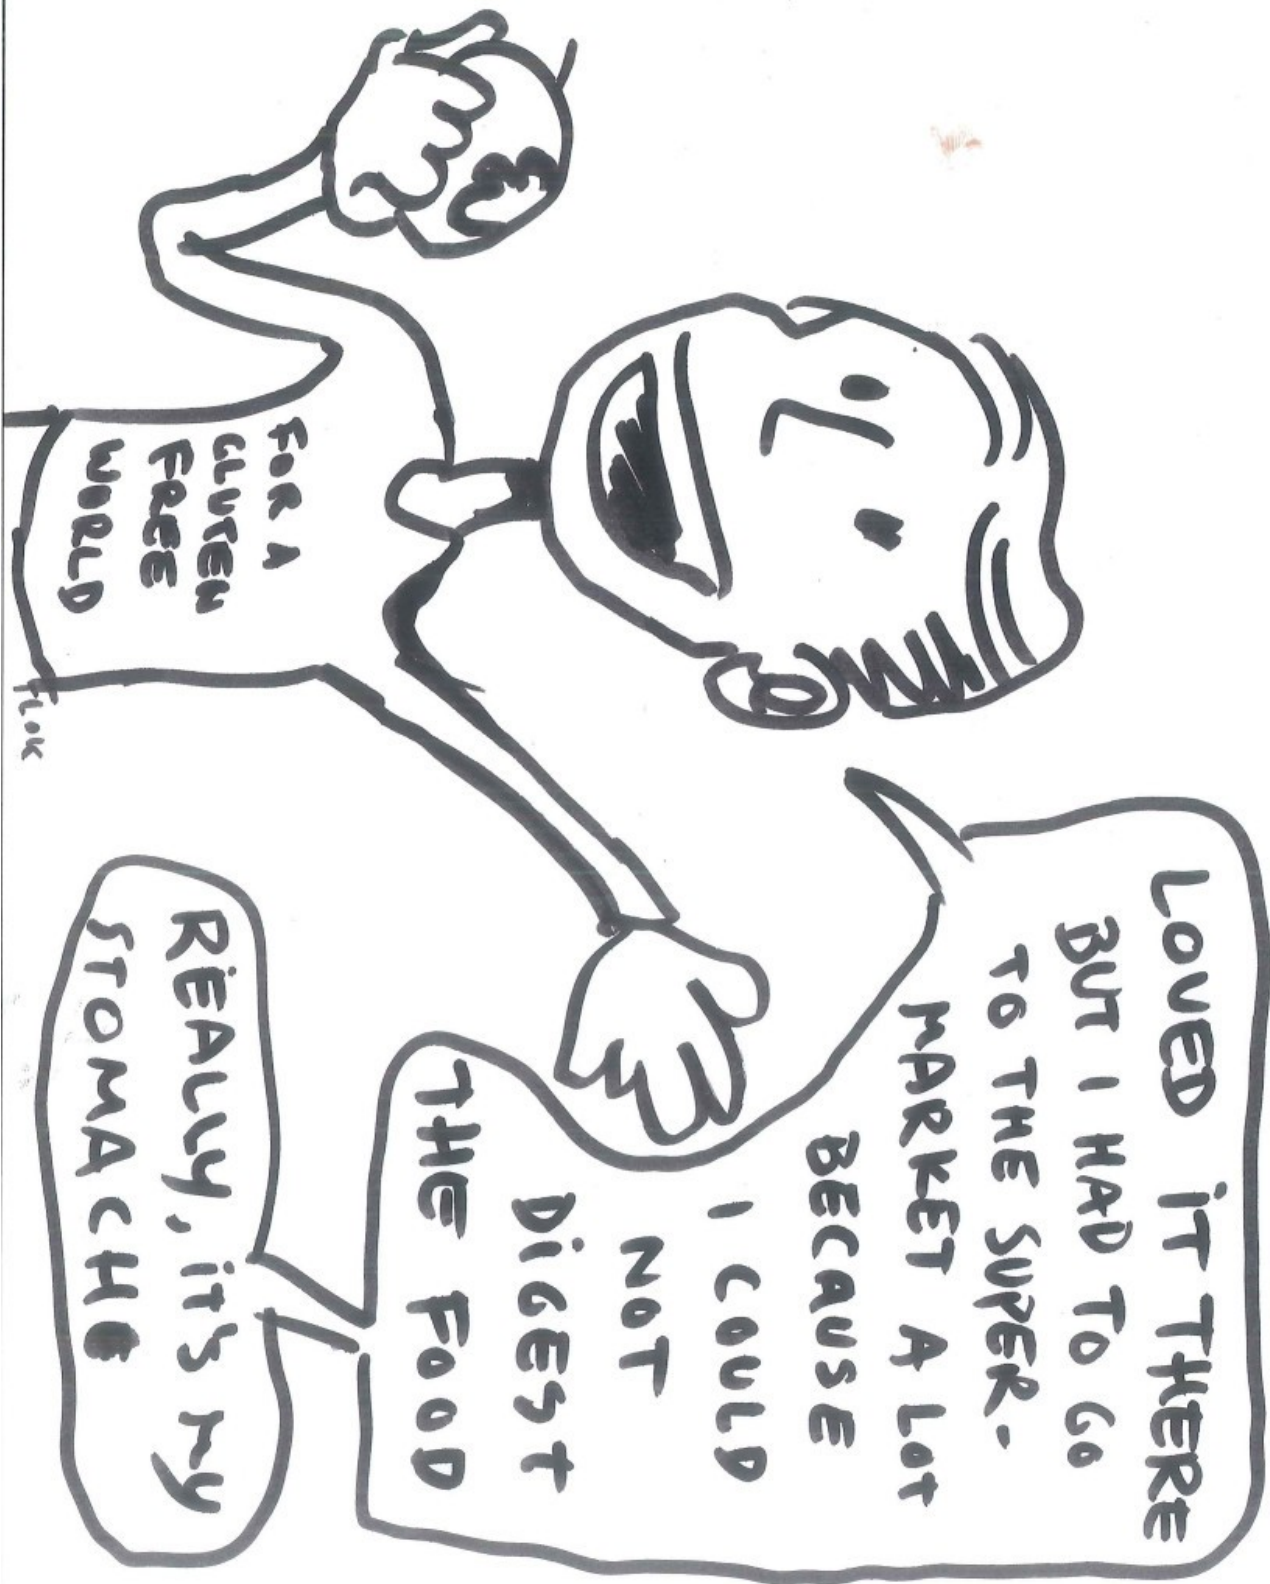 LOVED iT THERE
BUT I HAD TO GO
TO THE SUPER-
MARKET A LOT
BECAUSE
I COULD
NOT
DiGEST
THE FOOD
REALLY, it's my
STOMACHE
FOR A
GLUTEN
FREE
WORLD
FLOK